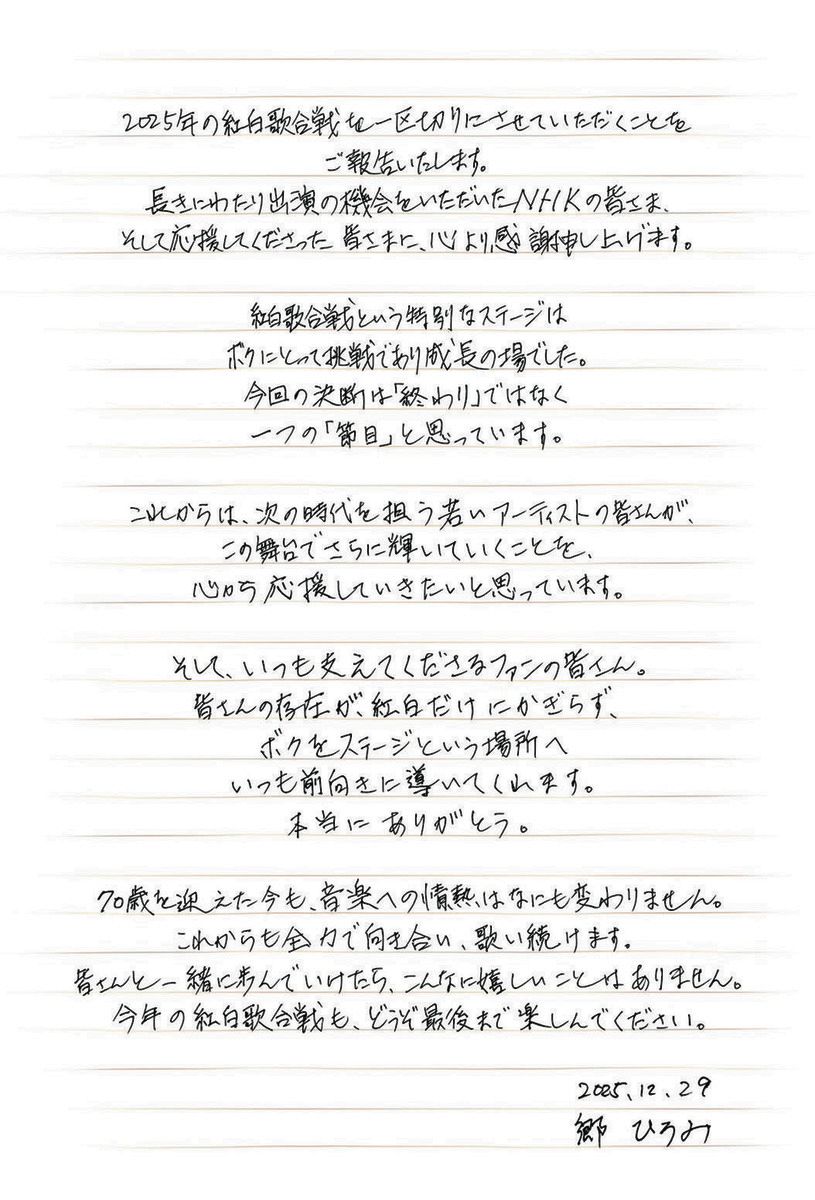 2025年の紅白歌合戦を一区切りにさせていただくことを
ご報告いたします。
長きにわたり出演の機会をいただいたNHKの皆さま、
そして応援してくださった皆さまに、心より感謝申し上げます。
紅白歌合戦という特別なステージは
ボクにとって挑戦であり成長の場でした。
今回の決断は「終わり」ではなく
一つの「節目」と思っています。
これからは、次の時代を担う若いアーティストの皆さんが、
この舞台でさらに輝いていくことを、
心から応援していきたいと思っています。
そして、いつも支えてくださるファンの皆さん。
皆さんの存在が、紅白だけにかぎらず、
ボクをステージという場所へ
いつも前向きに導いてくれます。
本当にありがとう。
70歳を迎えた今も、音楽への情熱はなにも変わりません。
これからも全力で向き合い、歌い続けます。
皆さんと一緒に歩んでいけたら、こんなに嬉しいことはありません。
今年の紅白歌合戦も、どうぞ最後まで楽しんでください。
2025.12.29
郷 ひろみ